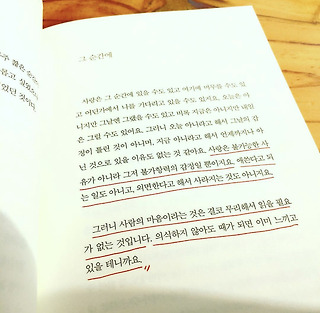 그 순간에
사랑은 그 순간에 있을 수도 있고 여기에 머무를 수도 있
고 어딘가에서 나를 기다리고 있을 수도 있지요. 오늘은 아
니지만 그날엔 그랬을 수도 있고 비록 지금은 아니지만 내일
은 그럴 수도 있어요. 그러니 오늘 아니라고 해서 그날의 감
정이 틀린 것이 아니며, 지금 아니라고 해서 언제까지나 아
닌 것으로 있을 이유도 없는 것 같아요. 사랑은 불가능한 사
유가 아니라 그저 불가항력의 감정일 뿐이지요. 애쓴다고 되
는 일도 아니고, 외면한다고 해서 사라지는 것도 아니지요.
그러니 사람의 마음이라는 것은 결코 무리해서 읽을 필요
가 없는 것입니다. 의식하지 않아도 때가 되면 이미 느끼고
있을 테니까요.